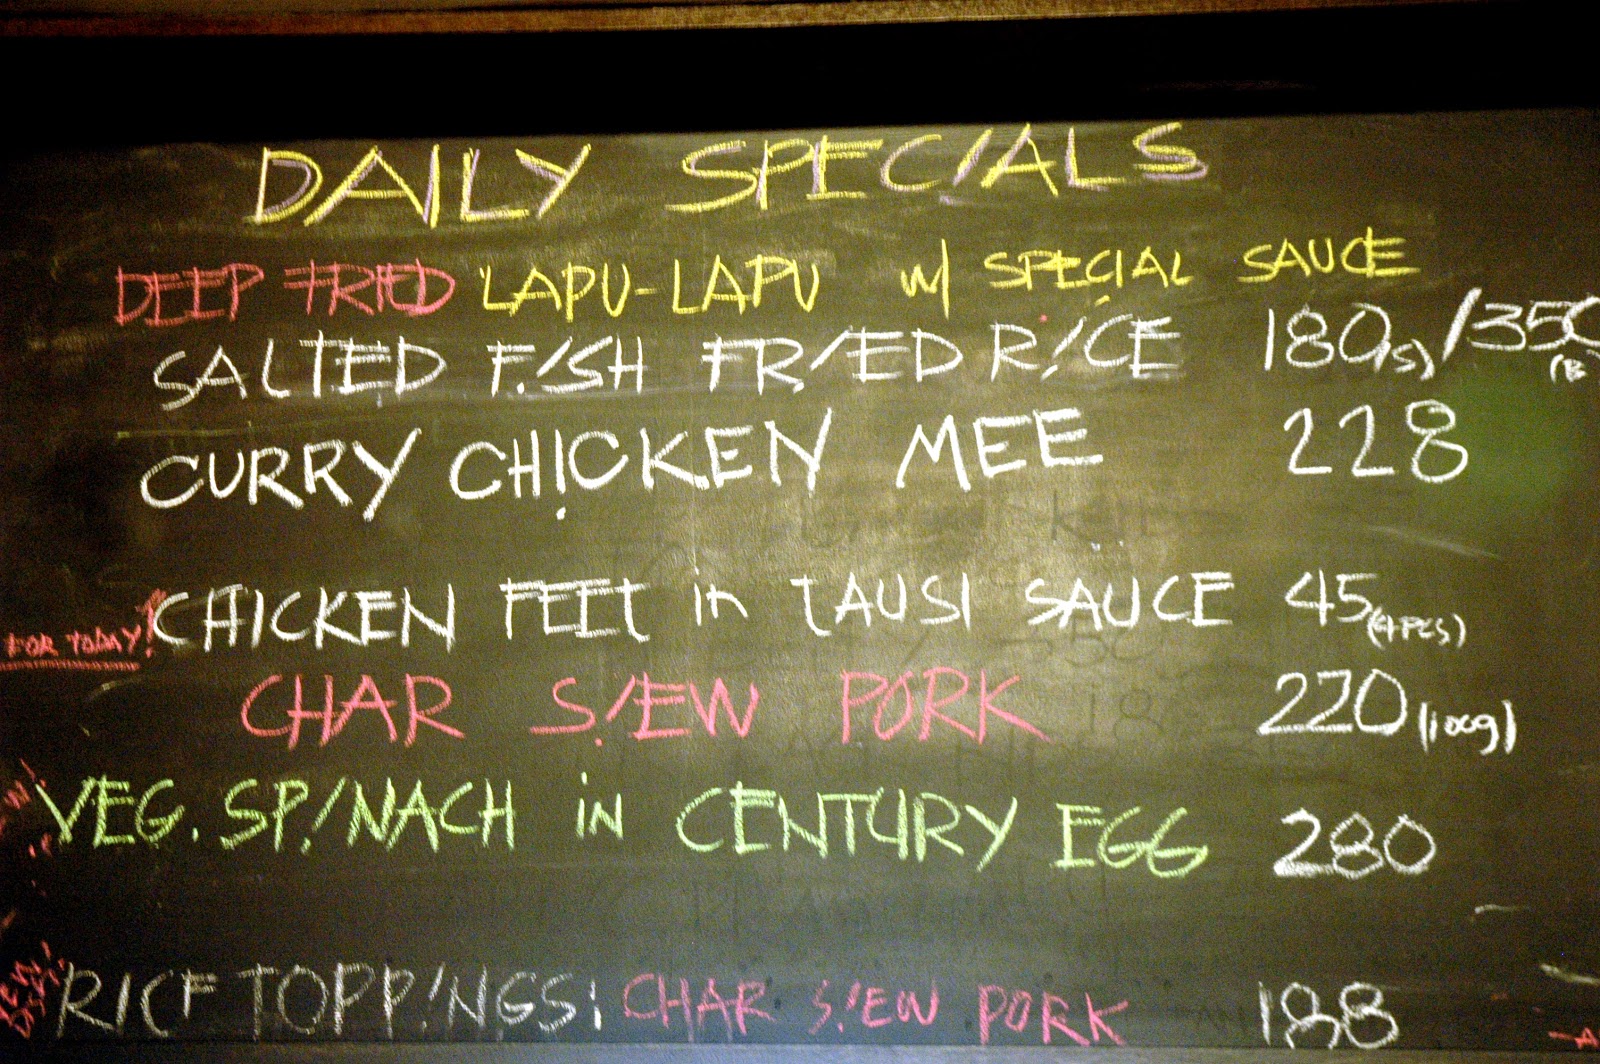 DAILY SPECIALS
DEEP FRIED LAPU-LAPU w/ SPECIAL SAUCE
SALTED FISH FRIED RICE 180(S)/350(B
CURRY CHICKEN MEE 228
FOR TODAY! CHICKEN FEET in TAUSI SAUCE 45(4PCS)
CHAR SIEW PORK 220(100g)
VEG. SPINACH in CENTURY EGG 280
RICE TOPPINGS: CHAR SIEW PORK 188